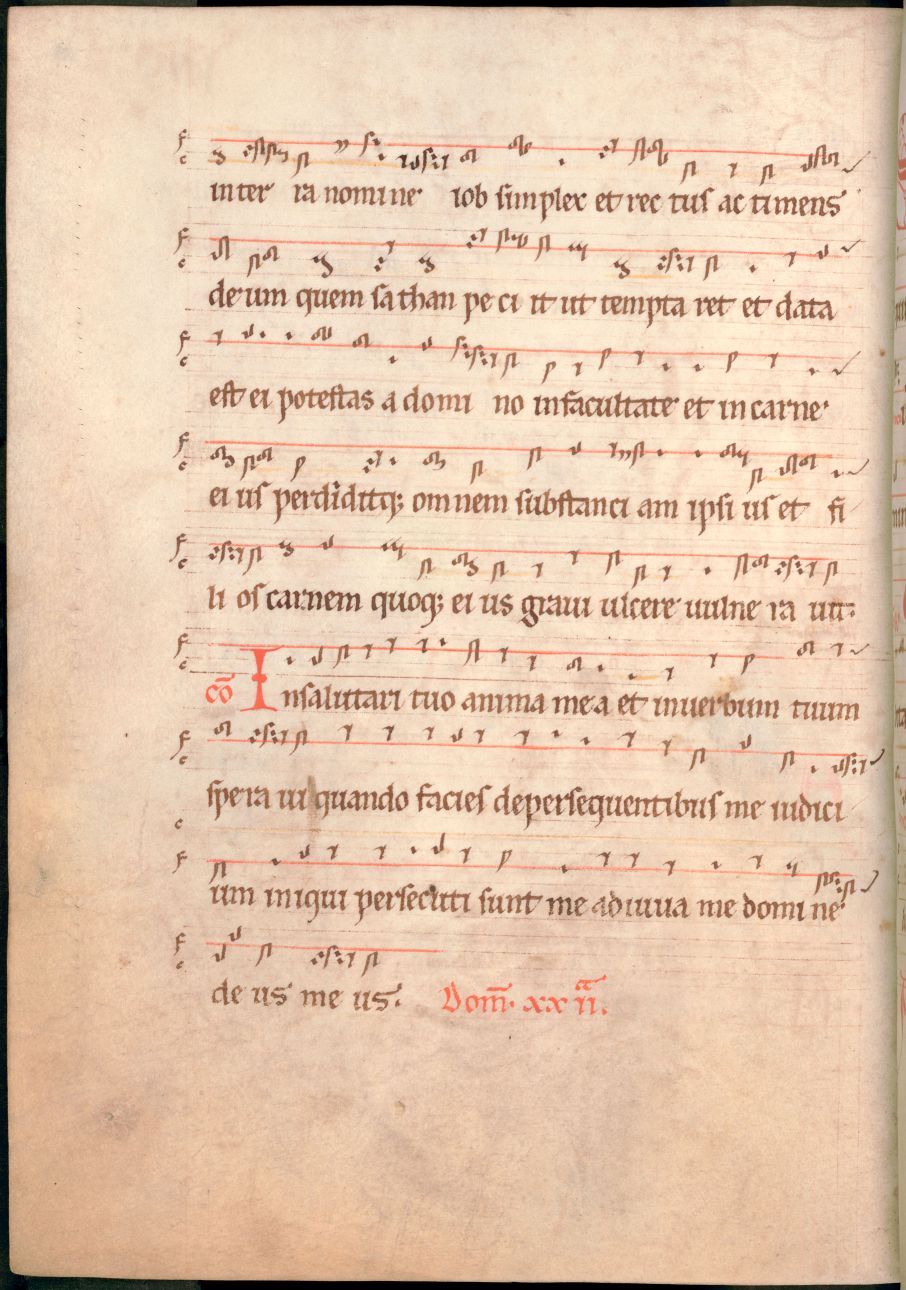 in ter ra nomine iob simplex et rec tus ac timens
de um quem sathan pe ci it ut tempta ret et data
est ei potestas a domi no in facultate et in carne
ei us perdiditq; omnem substanci am ipsi us et fi
li os carnem quoq; ei us graui ulcere uulne ra uit.
cō In salutari tuo anima mea et in uerbum tuum
spera ui quando facies de persequentibus me iudici
um iniqui persecuti sunt me adiuua me domi ne
de us me us. Dom̄. xx ii.ᵃ